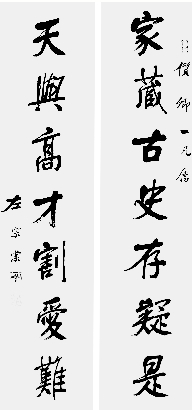 價卿一兄屬
家藏古史存疑是
天與高才割愛難
左宗棠